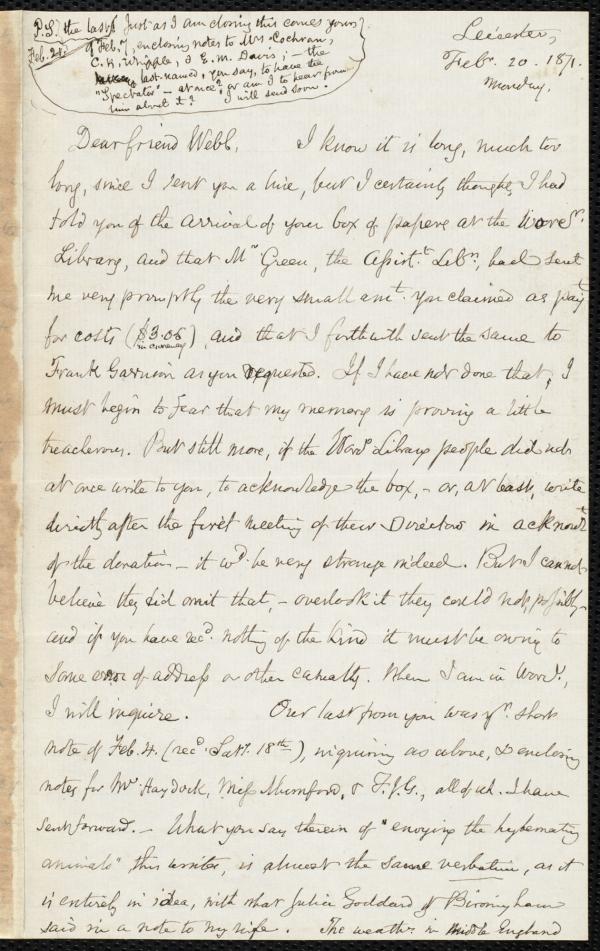 P.S. the last. Just as I am closing this comes yours
Feb. 21. of Feb. 7, enclosing notes to Mrs Cochran,
C. K. Whipple, & E. M. Davis; – the
last-named, you say, to have the
"Spectator" – at once? or am I to hear from
him about it? I will send soon.
Leicester,
Feb. 20. 1871.
Monday.
Dear friend Webb, I know it is long, much too
long, since I sent you a line, but I certainly thought I had
told you of the arrival of your box of papers at the Worcr.
Library, and that Mr Green, the Assist.t Libn., had sent
me very promptly the very small amt. you claimed as payt
for costs ($3.06 in currency), and that I forthwith sent the same to
Frank Garrison as you requested. If I have not done that, I
must begin to fear that my memory is proving a little
treacherous. But still more, if the Worc. Library people did not
at once write to you, to acknowledge the box, – or, at least, write
directly after the first meeting of their Directors in acknowt
of the donation – it wd. be very strange indeed. But I cannot
believe they did omit that, – overlook it they could not, possibly –
and if you have recd. nothing of the kind it must be owing to
some error of address or other casualty. When I am in Worcr.,
I will inquire. Our last from you was yr. short
note of Feb. 4. (recd. Sat. 18th), inquiring as above, & enclosing
notes for Mr Haydock, Miss Mumford, & F.J.G., all of wh. I have
sent forward. – What you say therein of "envying the hybernating
animals" this winter, is almost the same verbatim, as it
is entirely in idea, with what Julia Goddard of Birmingham
said in a note to my wife. The weather in Middle England